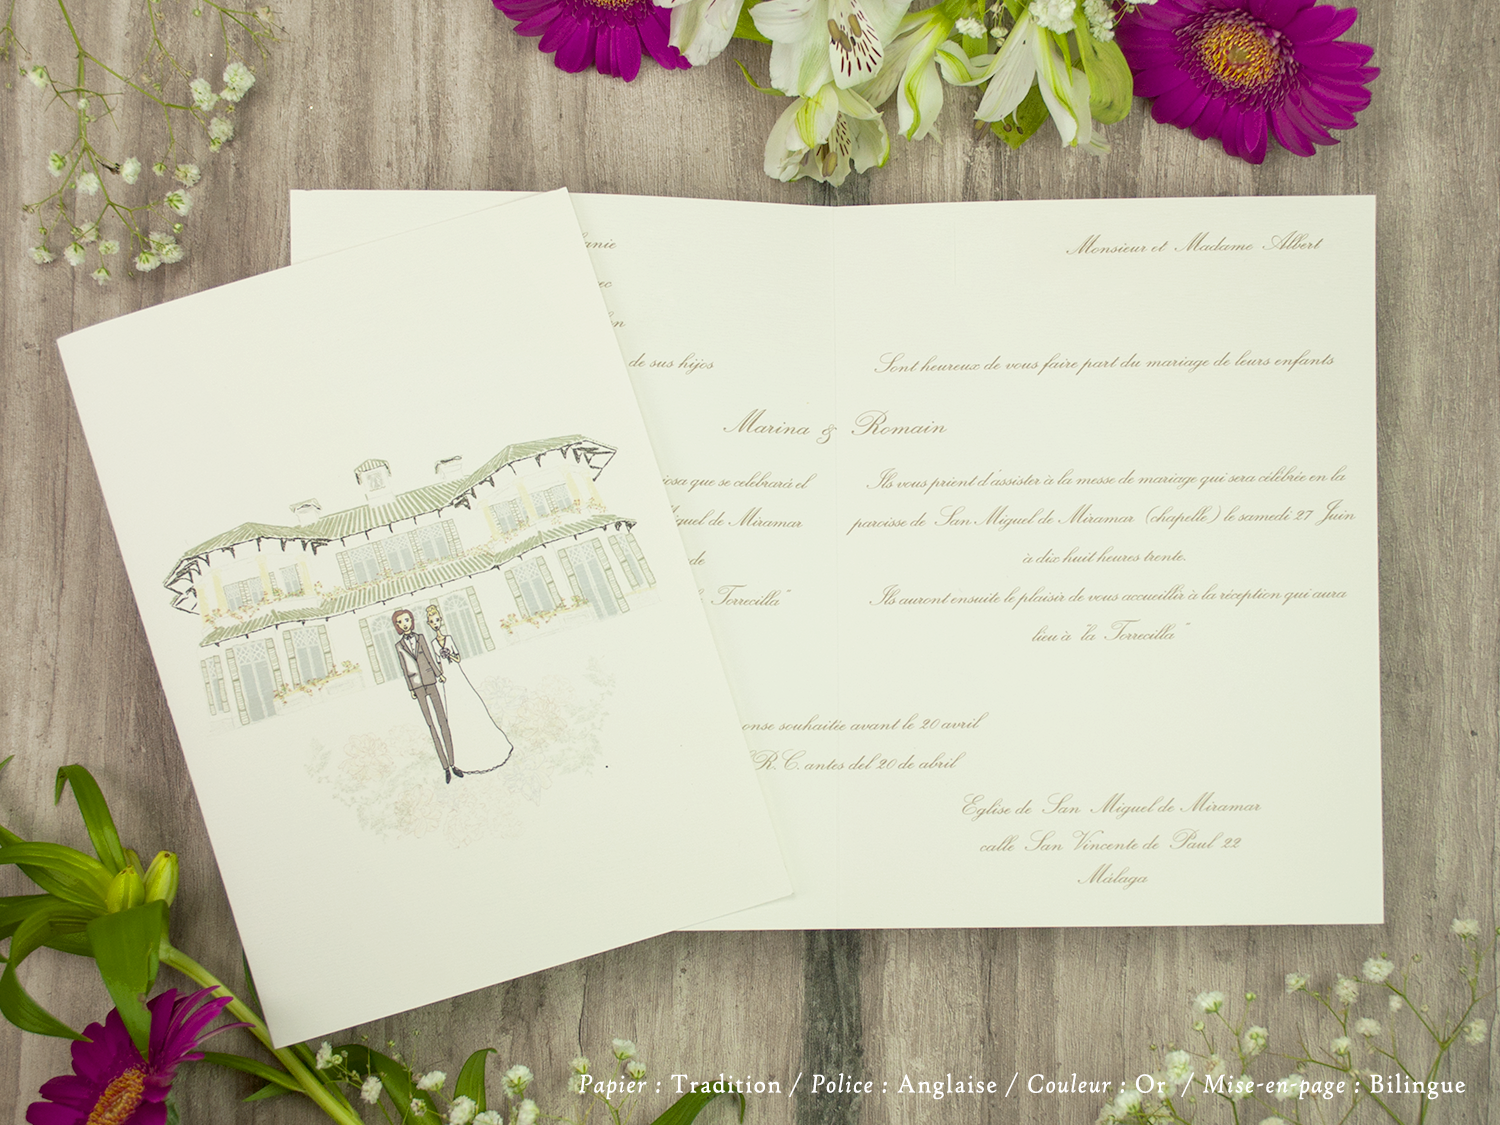 Monsieur et Madame Albert
de sus hijos
Sont heureux de vous faire part du mariage de leurs enfants
Marina & Romain
que se celebrará el
Miguel de Miramar
de
Torrecilla"
Ils vous prient d'assister à la messe de mariage qui sera célébrée en la
paroisse de San Miguel de Miramar (chapelle) le samedi 27 Juin
à dix huit heures trente.
Ils auront ensuite le plaisir de vous accueillir à la réception qui aura
lieu à "la Torrecilla"
souhaitée avant le 20 avril
R.C. antes del 20 de abril
Eglise de San Miguel de Miramar
calle San Vincente de Paul 22
Málaga
Papier : Tradition / Police : Anglaise / Couleur : Or / Mise-en-page : Bilingue